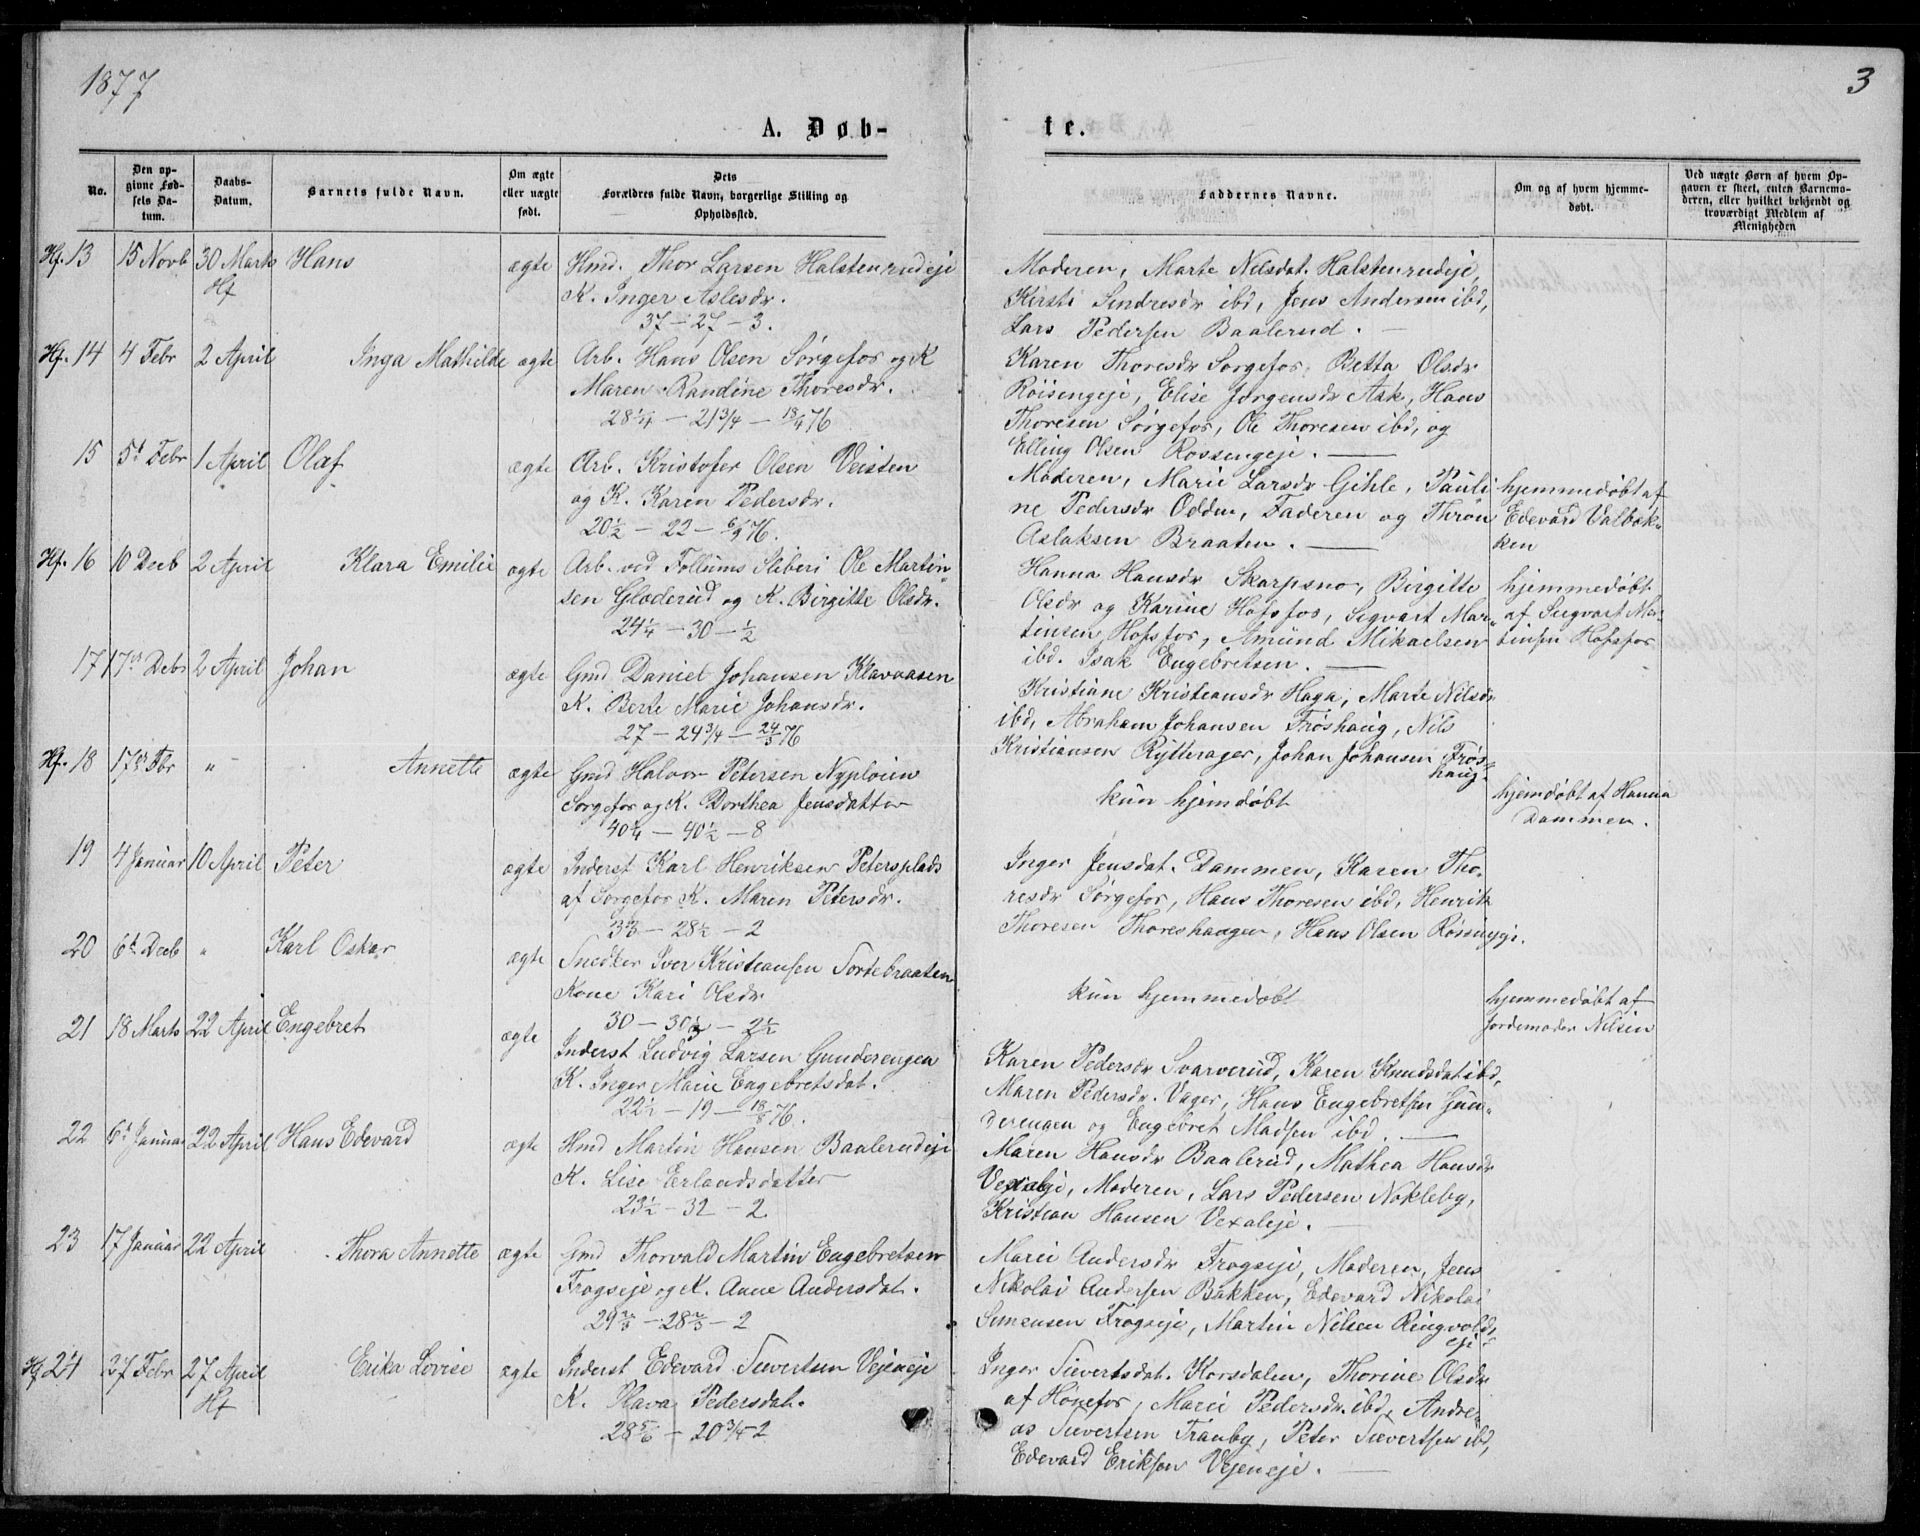 1877
3
A. Døb-
te.
No.
Den op-
givne Fød-
sels Da-
tum.
Daabs-
Datum.
Barnets fulde Navn.
Om ægte
eller uægte
født.
Dets
Forældres fulde Navn, borgerlige Stilling og
Opholdssted.
Faddernes Navne.
Om og af hvem hjemme-
døbt.
Ved uægte Børn af hvem Op-
gaven er skeet, enten Barnemo-
deren, eller hvilket bekjendt og
troværdigt Medlem af
Menigheden
Hf. 13 15 Novb 30 Marts Hans ægte Hmd. Thor Larsen Halstenrudeje
Hf
K. Inger Aslesdr.
37 - 27 - 3.
Moderen, Marte Nilsdat. Halstenrudeje,
Kirsti Sindresdr ibd, Jens Andersen ibd,
Lars Pedersen Baalerud.
Hf. 14 4 Febr 2 April Inga Mathilde ægte Arb. Hans Olsen Sørgefos og K
Maren Randine Thoresdr.
28 1/4 - 21 3/4 - 76
Karen Thoresdr Sørgefos, Betta Olsdr
Røisengeje, Elise Jørgensdr Ask, Hans
Thoresen Sørgefos, Ole Thoresen ibd, og
Elling Olsen Rossengeje.
15 5t Febr 1 April Olaf ægte Arb. Kristofer Olsen Veisten
og K. Karen Pedersdr.
20 1/2 - 22 - 6/9 76.
Moderen, Marie Larsdr Gihle, Pauli
ne Pedersdr Oddn, Faderen og Thron
Aslaksen Braaten.
hjemmedøbt af
Edevard Valbæk-
ken
Hf. 16 10 Decb 2 April Klara Emilie ægte Arb. ved Follums Sliberi Ole Martin
sen Gladerud og K. Birgitte Olsdr.
24 1/4 - 30 - 1/2
Hanna Hansdr Skarpsno, Birgitte
Olsdr og Karine Hofsfos, Sigvart Mar-
tinsen Hofsfos, Amund Mikaelsen
ibd. Isak Engebretsen.
hjemmedøbt
af Sigvart Mar-
tinsen Hofsfos
17 17de Decb 2 April Johan ægte Gmd Daniel Johansen Klavaasen
K. Berte Marie Johansdr.
27 - 24 3/4 - 24/3 76
Kristiane Kristiansdr Haga, Marte Nilsdr
ibd, Abraham Johansen Frøshaug, Nils
Kristiansen Rytterager, Johan Johansen Frøs-
haug.
Hf. 18 17de Fbr " Annette ægte Gmd Halvor Petersen Nypløien
Sørgefos og K. Dorthea Jensdatter
40 1/4 - 40 1/2 - 8
kun hjemdøbt
hjemdøbt af Hanna
Dammen.
19 4 Januar 10 April Peter ægte Inderst Karl Henriksen Petersplads
af Sørgefos K. Maren Petersdr.
- 28 1/2 - 2
Inger Jensdat. Dammen, Karen Tho-
resdr Sørgefos, Hans Thoresen ibd, Henrik
Thoresen Thoreshaugen, Hans Olsen
20 6t Decb " Karl Oskar ægte Snedker Iver Kristiansen Sortebraaten
Kone Kari Olsdr
30 - 30 1/2 - 2 1/2
kun hjemmedøbt
hjemmedøbt af
Jordemoder Nilsen
21 18 Marts 22 April Engebret ægte Inderst Ludvig Larsen Gunderengen
K. Inger Marie Engebretsdat.
22 1/2 - 19 - 76.
Karen Pedersdr Svarverud, Karen Knudsdat ibd,
Maren Pedersdr. Vager, Hans Engebretsen Gun-
derengen og Engebret Madsen ibd.
22 6t Januar 22 April Hans Edevard ægte Hmd Martin Hansen Baalerudeje
K. Lise Erlandsdatter
23 1/2 - 32 - 2
Maren Hansdr Baalerud, Mathea Hansdr
Vexaleje, Moderen, Lars Pedersen Nokleby,
Kristian Hansen Vexaleje.
23 17 Januar 22 April Thora Annette ægte Gmd Thorvald Martin Engebretsen
Frogseje og K. Anne Andersdat.
29 2/3 - 28 2/3 - 2
Marie Andersdr Frogseje, Moderen, Jens
Nikolai Andersen Bakken, Edevard Nikolai
Simensen Frogseje, Martin Nilsen Ringvolds-
eje
Hf 24 Febr 27 April Erika Lovise ægte Inderst Edevard Sivertsen Vejeneje
Hf
K. Hava Pedersdat.
28 5/6 - 20 3/4 - 2
Inger Sivertsdat. Korsdalen, Thorine Olsdr
af Hønefos, Marie Pedersdr. ibd, Andre-
as Sivertsen Tranby, Peter Sivertsen ibd,
Edevard Eriksen Vejeneje.